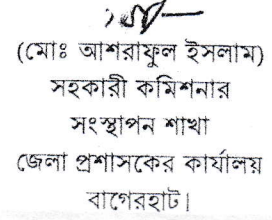 (মোঃ আশরাফুল ইসলাম)
সহকারী কমিশনার
সংস্থাপন শাখা
জেলা প্রশাসকের কার্যালয়
বাগেরহাট।